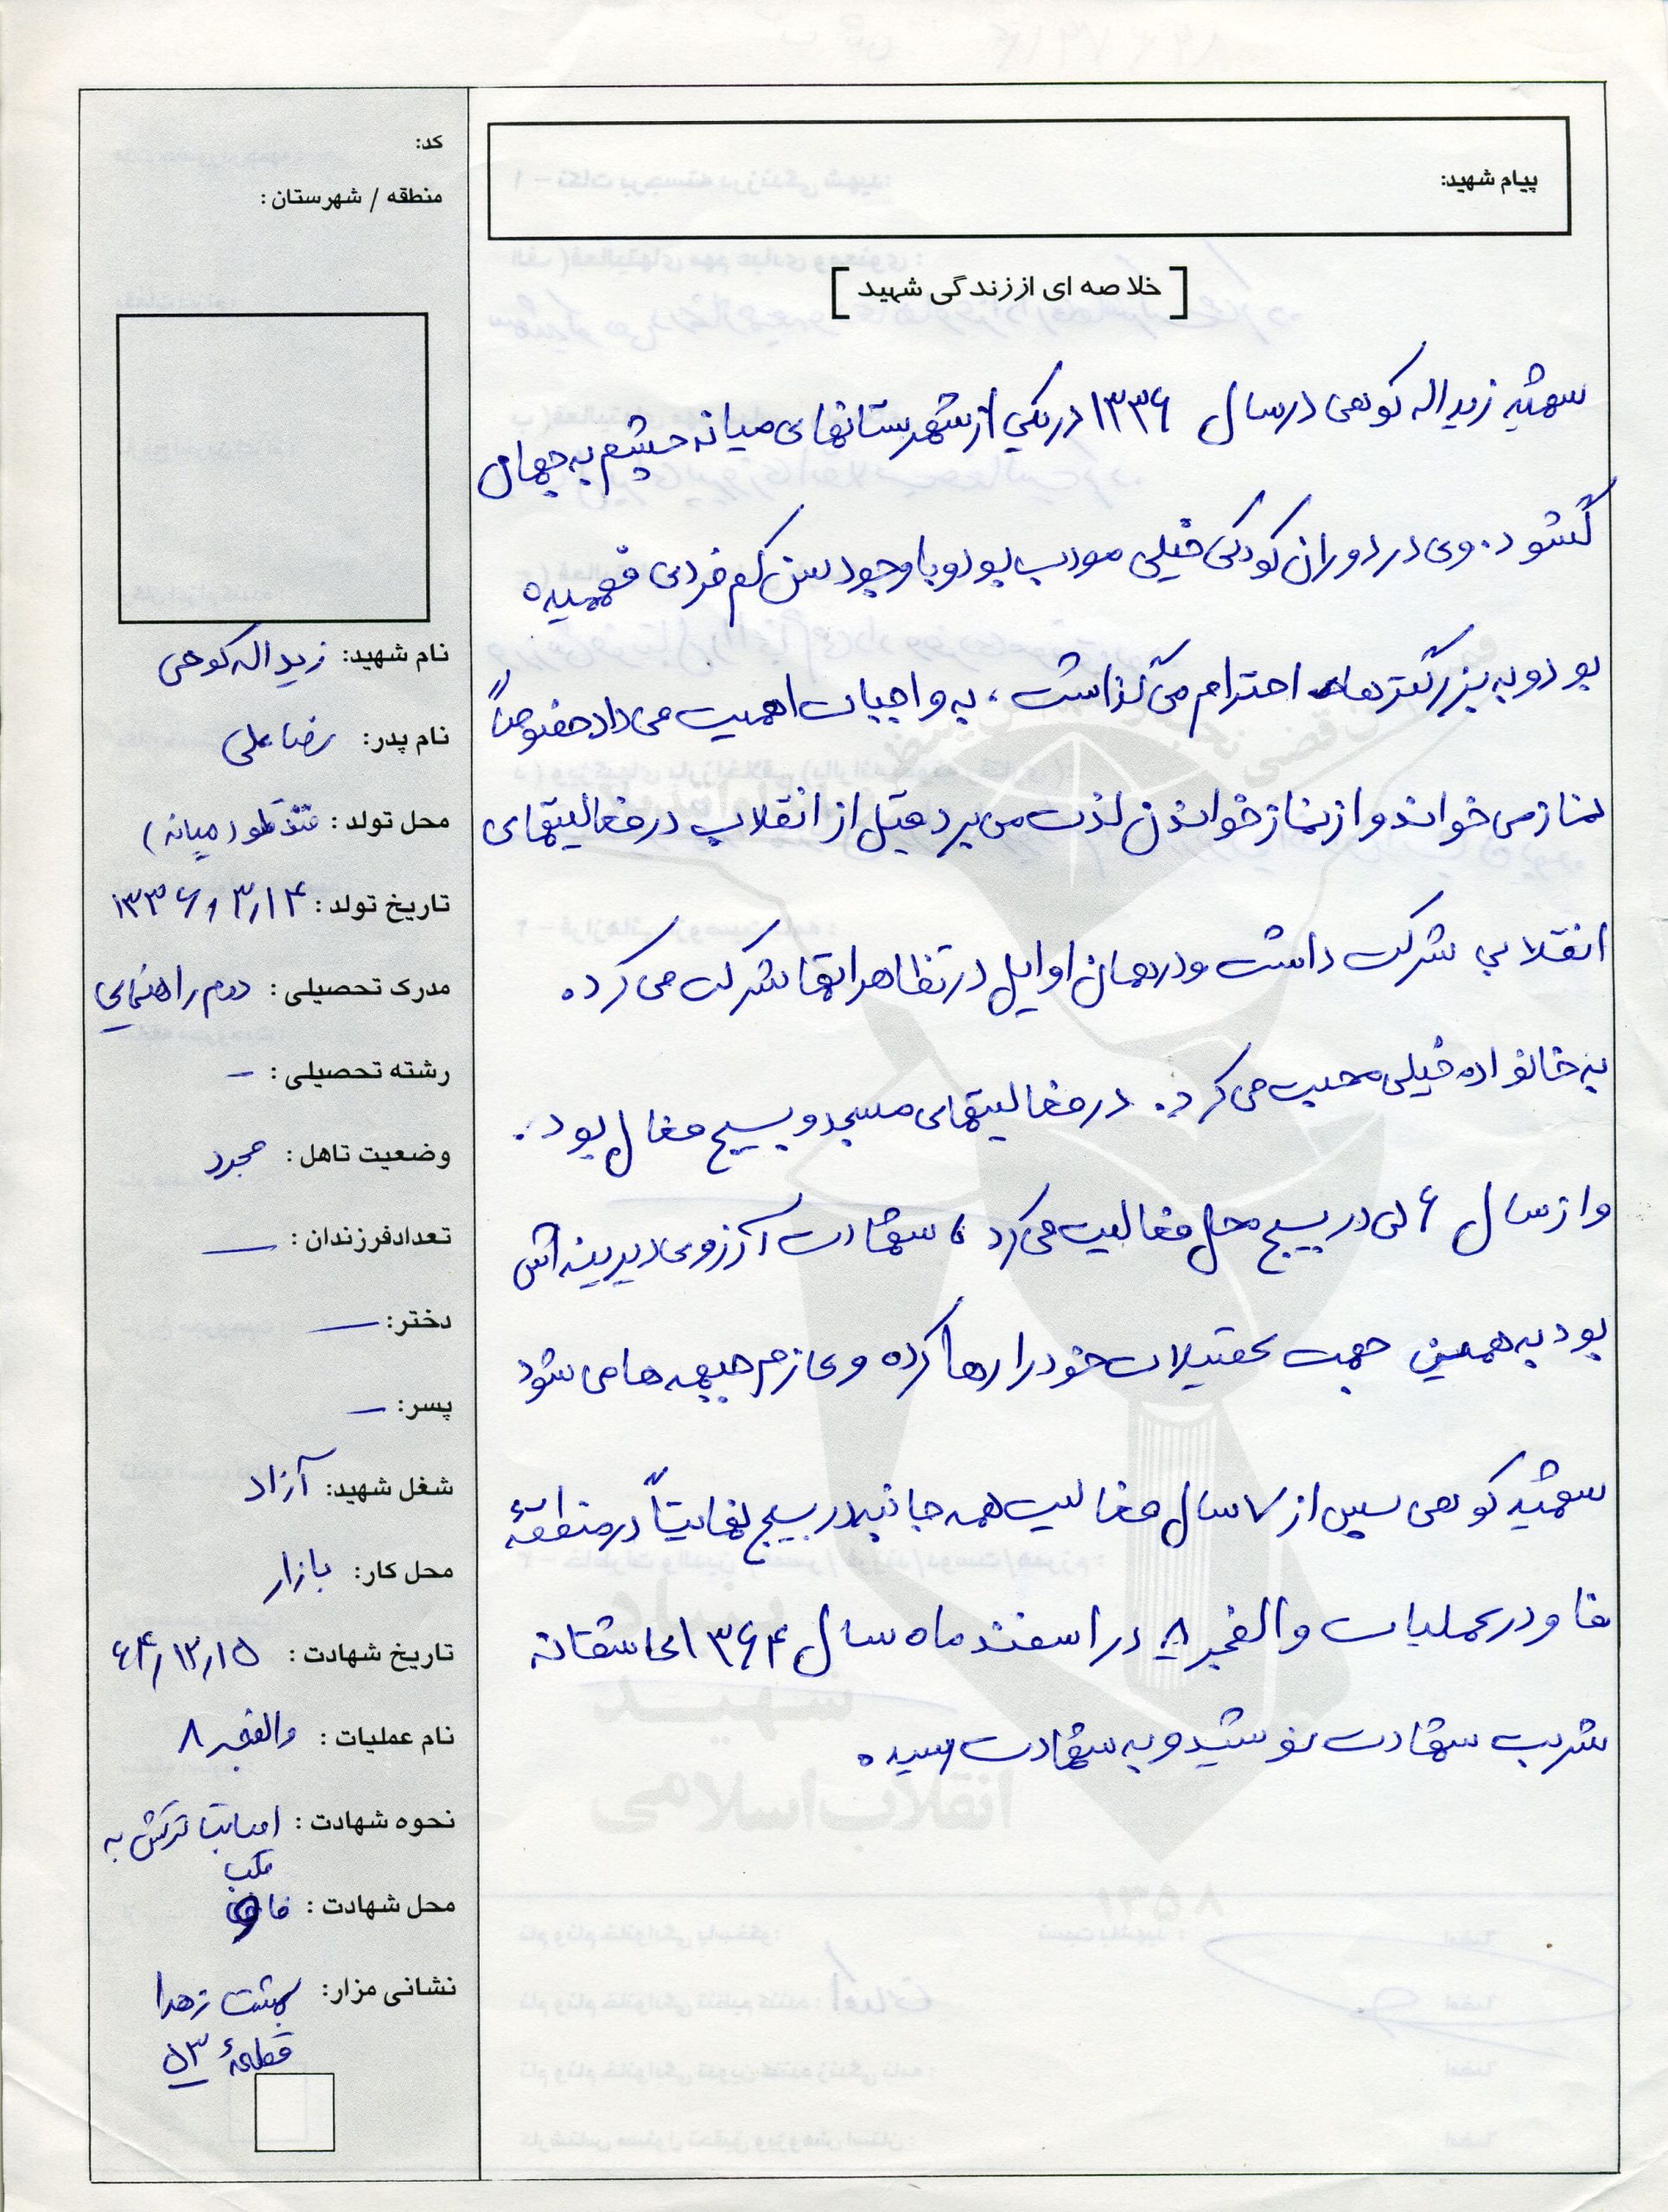 پیام شهید:
[خلاصه ای از زندگی شهید]
شهید زیداله کوهی در سال ۱۳۳۶ در یکی از شهرستانهای میانه چشم به جهان
گشود. وی در دوران کودکی خیلی مودب بود و با وجود سن کم فردی فهمیده
بود و به بزرگترها احترام می گذاشت، به واجبات اهمیت می داد خصوصاً
نماز می خواند و از نماز خواندن لذت می برد قبل از انقلاب در فعالیتهای
انقلابی شرکت داشت و در همان اوایل در تظاهراتها شرکت می کرد.
به خانواده خیلی محبت می کرد. در فعالیتهای مسجد و بسیج فعال بود.
و از سال در بسیج محل فعالیت می کرد، شهادت آرزوی دیرینه اش
بود به همین جهت تحصیلات خود را رها کرده و عازم جبهه ها می شود
شهید کوهی پس از ۷ سال فعالیت همه جانبه در بسیج نهایتاً در منطقۀ
فاو در عملیات والفجر ۸ در اسفند ماه سال ۱۳۶۴ عاشقانه
شربت شهادت نوشید و به شهادت رسید.
کد:
منطقه / شهرستان :
نام شهید: زیداله کوهی
نام پدر: رضا علی
محل تولد : (میانه)
تاریخ تولد : ۱۳۳۶٫۳٫۱۴
مدرک تحصیلی : دوم راهنمایی
رشته تحصیلی : –
وضعیت تاهل : مجرد
تعداد فرزندان : —
دختر: —
پسر: –
شغل شهید: آزاد
محل کار: بازار
تاریخ شهادت : ۶۴٫۱۲٫۱۵
نام عملیات : والفجر ۸
نحوه شهادت : اصابت ترکش به
قلب
محل شهادت : فاو
نشانی مزار: بهشت زهرا
قطعۀ ۵۳